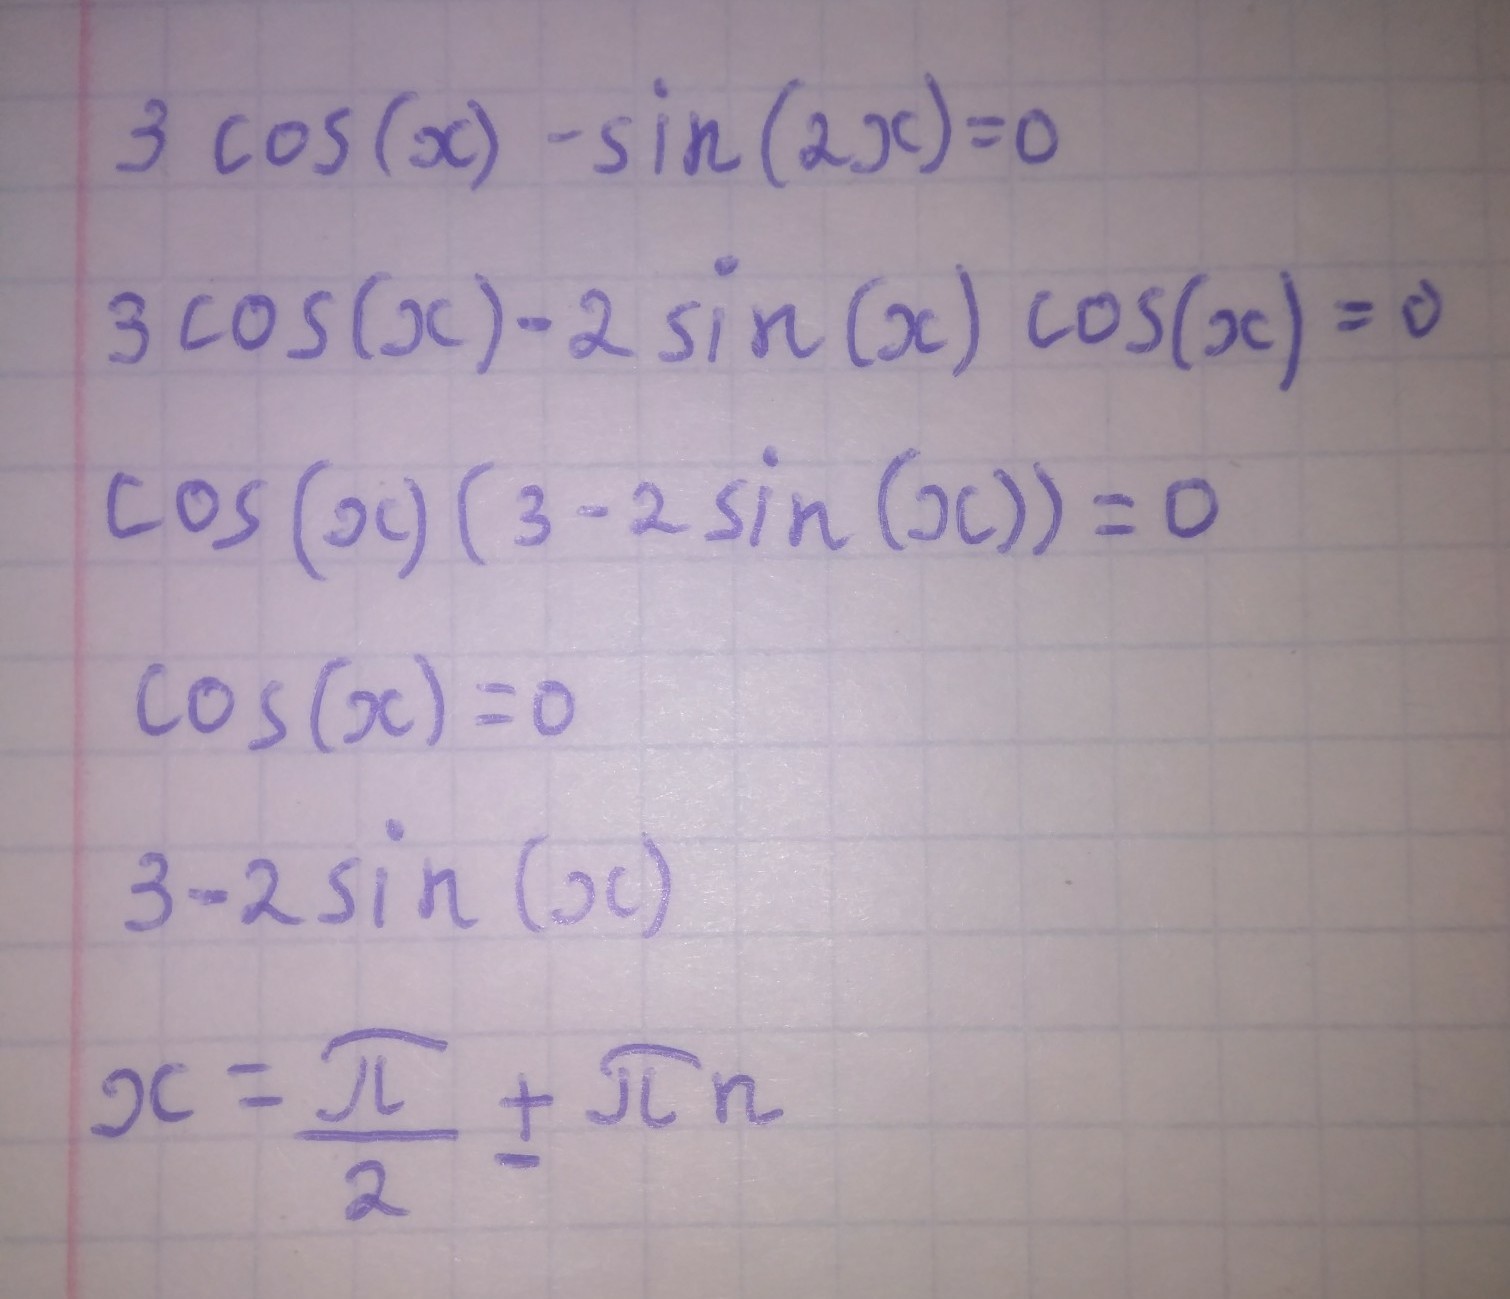 3 cos(x) - sin(2x) = 0
3 cos(x) - 2 sin(x) cos(x) = 0
cos(x)(3 - 2 sin(x)) = 0
cos(x) = 0
3 - 2 sin(x)
x = π/2 ± πn